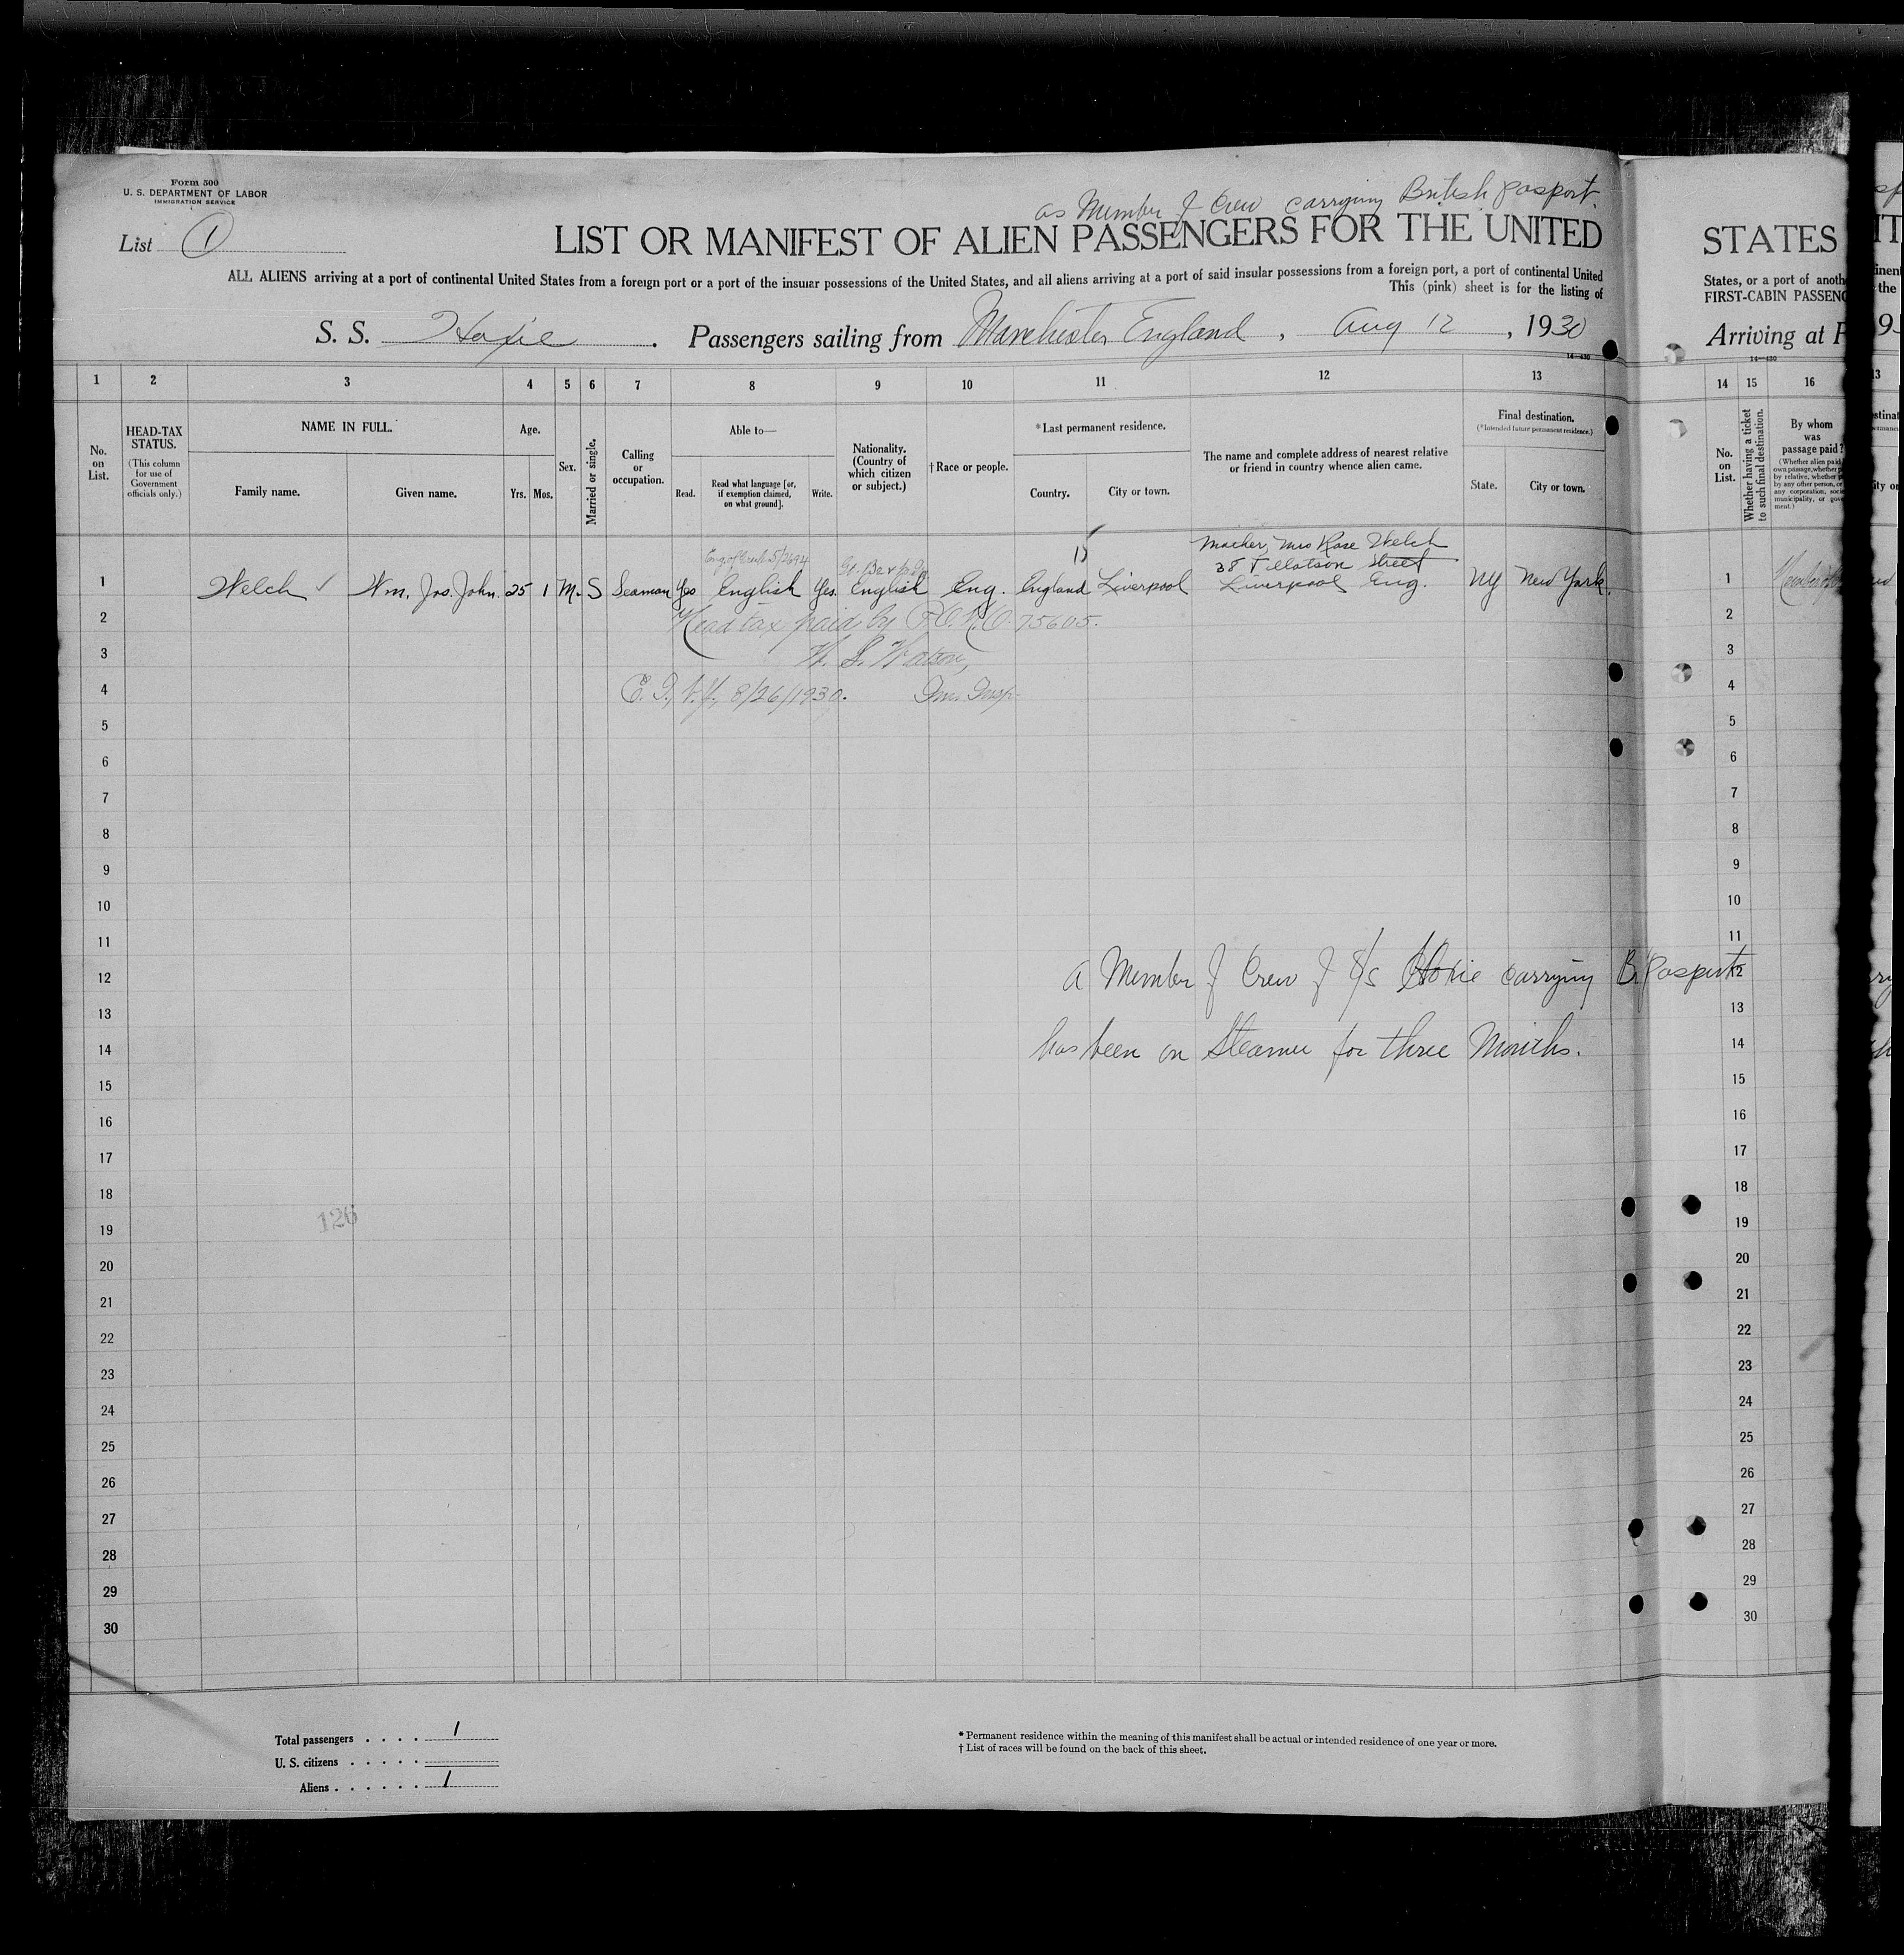 Form 500
U. S. DEPARTMENT OF LABOR
IMMIGRATION SERVICE
List 1
as Member of Crew carrying British pasport.
LIST OR MANIFEST OF ALIEN PASSENGERS FOR THE UNITED
STATES
ALL ALIENS arriving at a port of continental United States from a foreign port or a port of the insular possessions of the United States, and all aliens arriving at a port of said insular possessions from a foreign port, a port of continental United
States, or a port of anoth
This (pink) sheet is for the listing of
FIRST-CABIN PASSENG
S. S. Hoxie. Passengers sailing from Manchester England, Aug 12, 1930
Arriving at P
14—430
14—430
1 2 3 4 5 6 7 8 9 10 11 12 13
14 15 16
No. on List.
HEAD-TAX STATUS.
(This column for use of Government officials only.)
NAME IN FULL.
Family name.
Given name.
Age.
Yrs. Mos.
Sex.
Married or single.
Calling or occupation.
Able to—
Read.
Read what language [or, if exemption claimed, on what ground].
Write.
Nationality. (Country of which citizen or subject.)
†Race or people.
*Last permanent residence.
Country.
City or town.
The name and complete address of nearest relative or friend in country whence alien came.
Final destination.
(*Intended future permanent residence.)
State.
City or town.
No. on List.
Whether having a ticket to such final destination.
By whom was passage paid?
15
Mother, Mrs Rose Welch
38 Tillotson Street
Liverpool Eng.
1 Welch ✓ Wm. Jos. John. 25 1 M. S Seaman Yes English Yes. English Eng. England Liverpool NY New York. 1
2 Head tax paid by 75605. 2
3 W. S. Watson, 3
4 E. I., N.Y., 8/26/1930. Imm. Insp. 4
5 5
6 6
7 7
8 8
9 9
10 10
11 11
12 a Member of Crew of S/S Hoxie carrying Br pasport 12
13 13
14 has been on Steamer for three Months. 14
15 15
16 16
17 17
18 18
126
19 19
20 20
21 21
22 22
23 23
24 24
25 25
26 26
27 27
28 28
29 29
30 30
Total passengers . . . . 1
U. S. citizens . . . . .
Aliens . . . . . . 1
* Permanent residence within the meaning of this manifest shall be actual or intended residence of one year or more.
† List of races will be found on the back of this sheet.